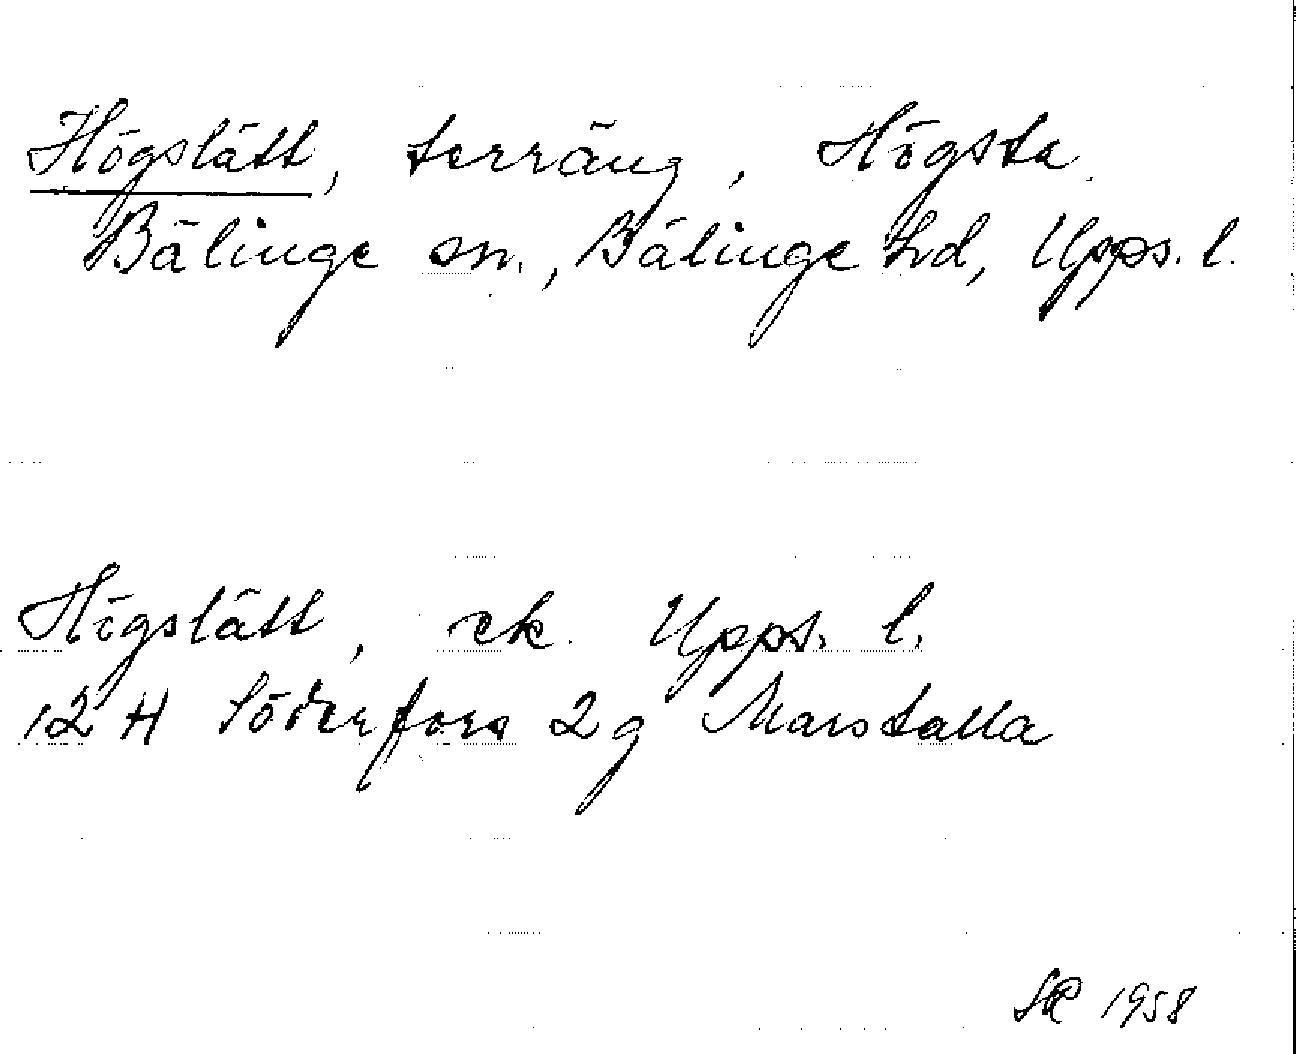 Högslätt, terräng, Högsta.
Bälinge sn., Bälinge hd, Upps. l.
Högslätt, ek. Upps. l.
12 H Söderfors 2g Marstalla
1958